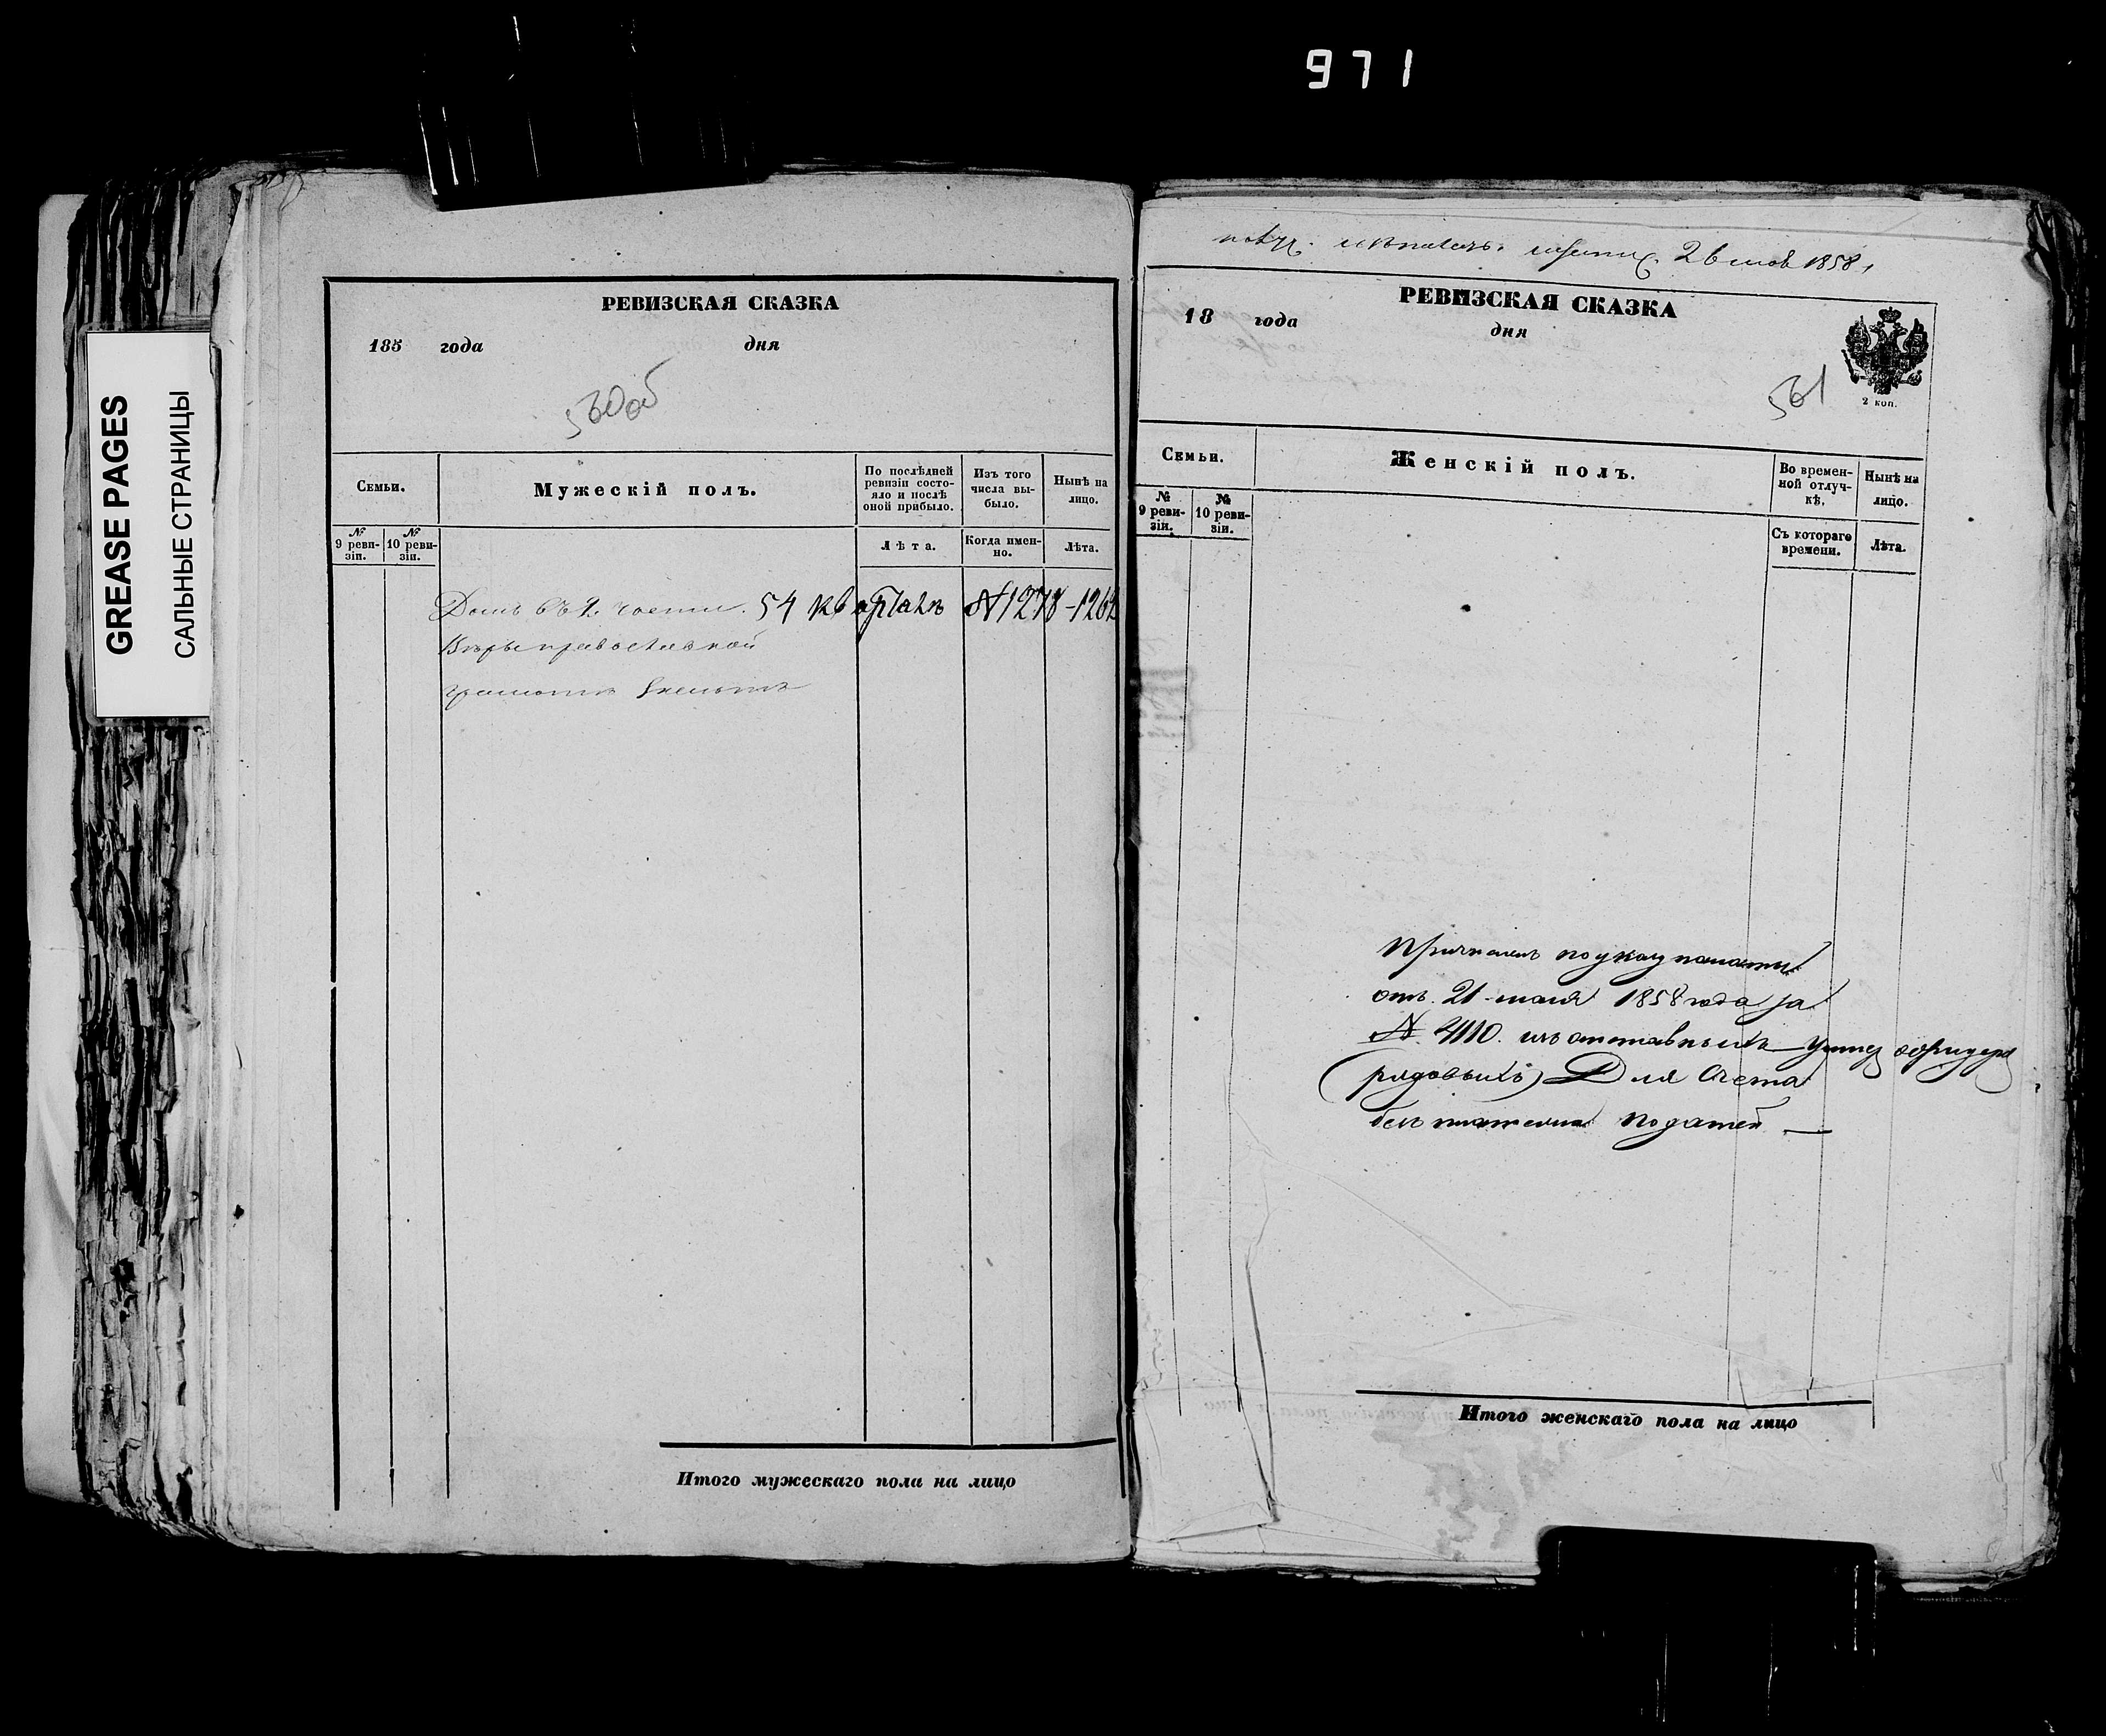 971
GREASE PAGES
САЛЬНЫЕ СТРАНИЦЫ
РЕВИЗСКАЯ СКАЗКА
185 года дня
560об
Семьи.
Мужескій полъ.
По послѣдней ревизіи состо-
яло и послѣ
оной прибыло.
Изъ того
числа вы-
было.
Нынѣ на
лицо.
№ 9 реви-
зіи.
№ 10 реви-
зіи.
Лѣта.
Когда имен-
но.
Лѣта.
Домъ въ 2. части. 54 кварталѣ №1278-126
Вѣры православной
грамотѣ знаетъ
Итого мужескаго пола на лицо
1858
РЕВИЗСКАЯ СКАЗКА
18 года дня
561
2 коп.
Семьи.
Женскій полъ.
Во времен-
ной отлуч-
кѣ.
Нынѣ на
лицо.
№ 9 реви-
зіи.
№ 10 реви-
зіи.
Съ котораго
времени.
Лѣта.
Причисленъ по указу палаты
отъ 21 маія 1858 года за
№ 4110. изъ отставныхъ Унтеръ офицеръ
(рядовыхъ) Для Счета
безъ платежа податей —
Итого женскаго пола на лицо